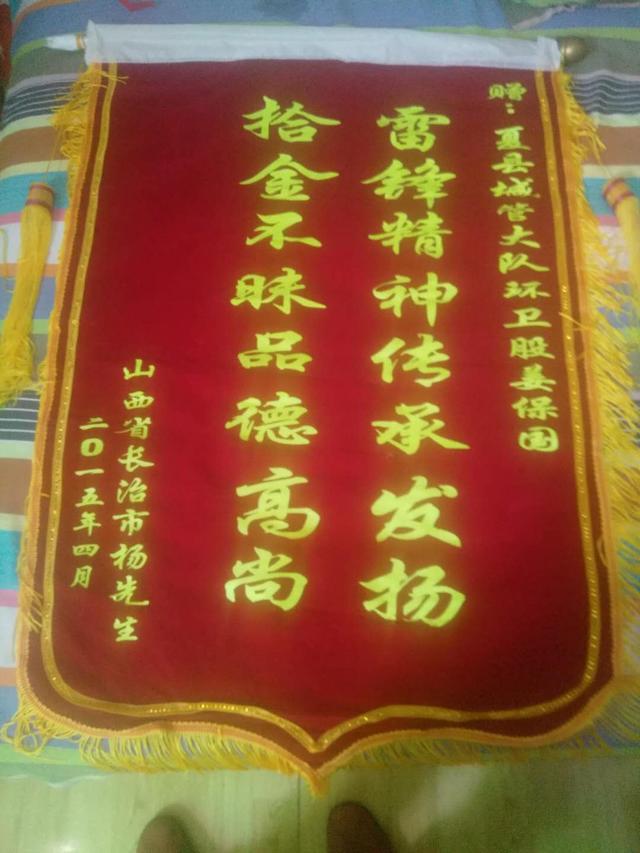 赠：夏县城管大队环卫股姜保国
雷锋精神传承发扬
拾金不昧品德高尚
山西省长治市杨先生
二0一五年四月